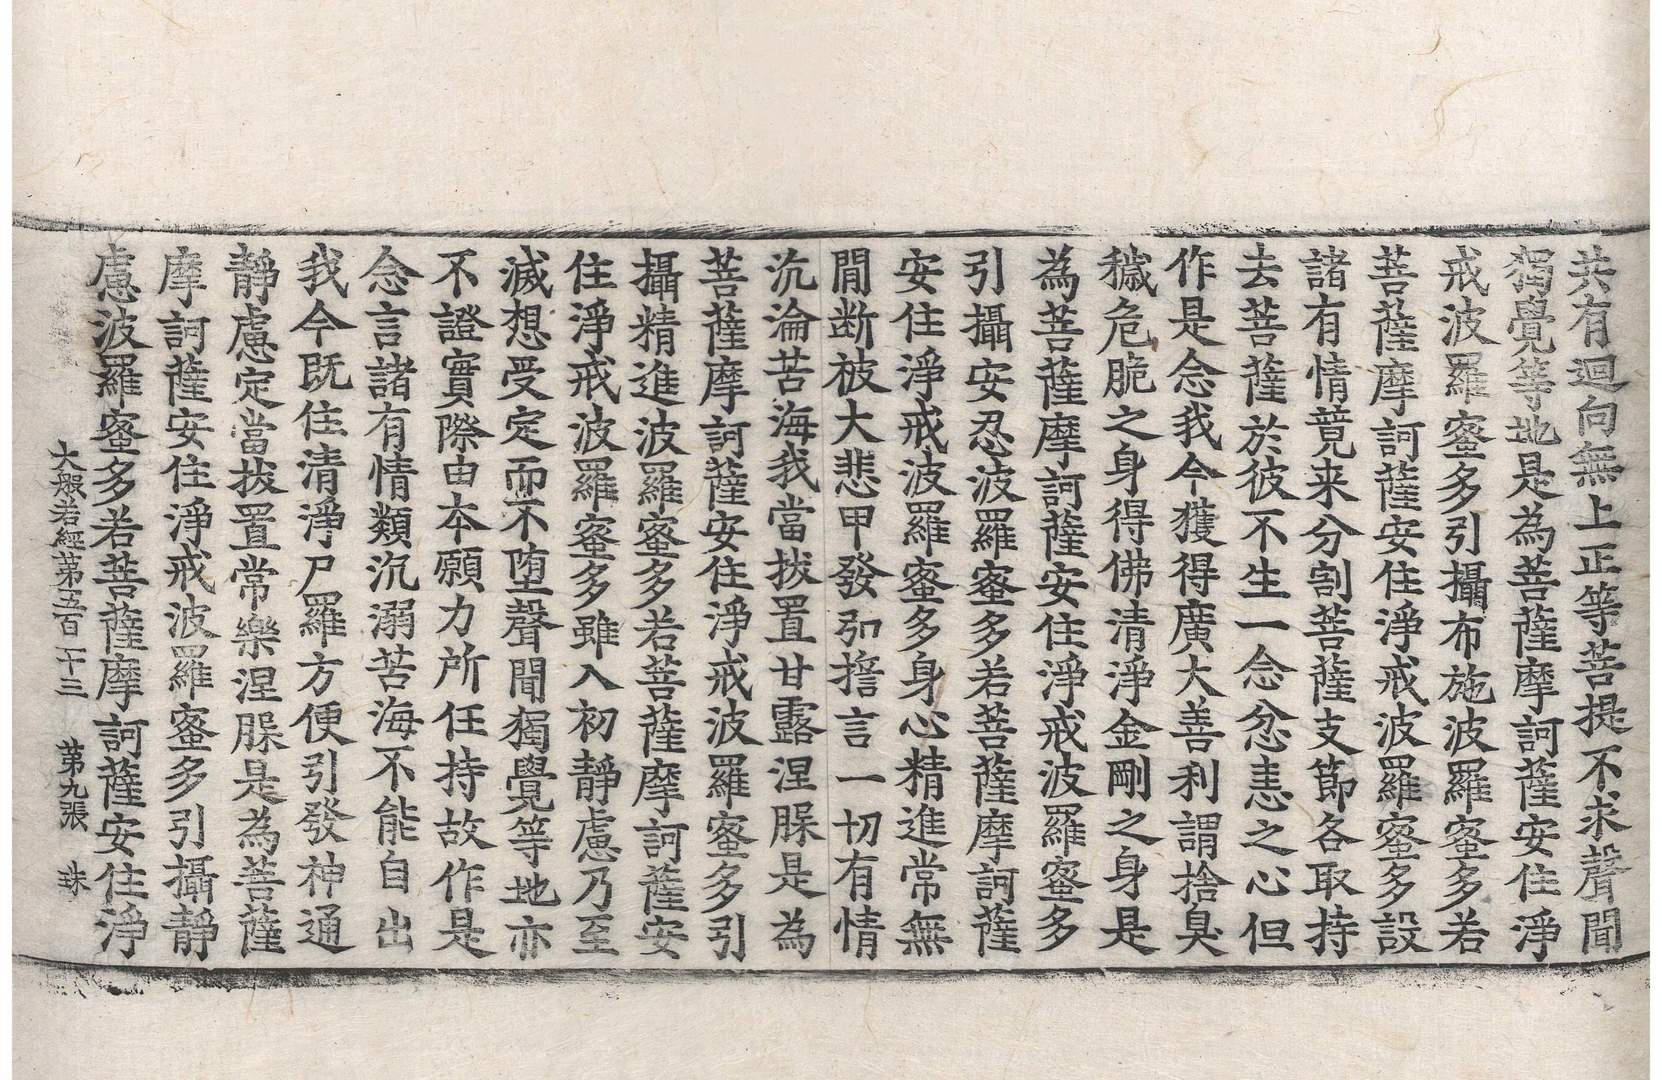 共有迴向無上正等菩提不求聲聞
獨覺等地是為菩薩摩訶薩安住淨
戒波羅蜜多引攝布施波羅蜜多若
菩薩摩訶薩安住淨戒波羅蜜多設
諸有情競来分割菩薩支節各取持
去菩薩於彼不生一念忿恚之心但
作是念我今獲得廣大善利謂捨臭
穢危脆之身得佛清淨金剛之身是
為菩薩摩訶薩安住淨戒波羅蜜多
引攝安忍波羅蜜多若菩薩摩訶薩
安住淨戒波羅蜜多身心精進常無
間断被大悲甲發弘擔言一切有情
沉淪苦海我當拔置甘露涅槃是為
菩薩摩訶薩安住淨戒波羅蜜多引
攝精進波羅蜜多若菩薩摩訶薩安
住淨戒波羅蜜多雖入初靜慮乃至
滅想受定而不墮聲聞獨覺等地亦
不證實際由本願力所任持故作是
念言諸有情類沉溺苦海不能自出
我今既住清淨尸羅方便引發神通
靜慮定當拔置常樂涅槃是為菩薩
摩訶薩安住淨戒波羅蜜多引攝靜
慮波羅蜜多若菩薩摩訶薩安住淨
大般若經第五百二十三 第九張 珠